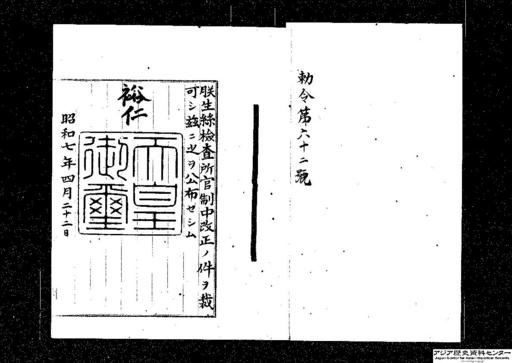 勅令第六十二號
朕生絲檢査所官制中改正ノ件ヲ裁
可シ玆ニ之ヲ公布セシム
裕仁
天皇
御璽
昭和七年四月二十二日
アジア歴史資料センター
Japan Center for Asian Historical Records